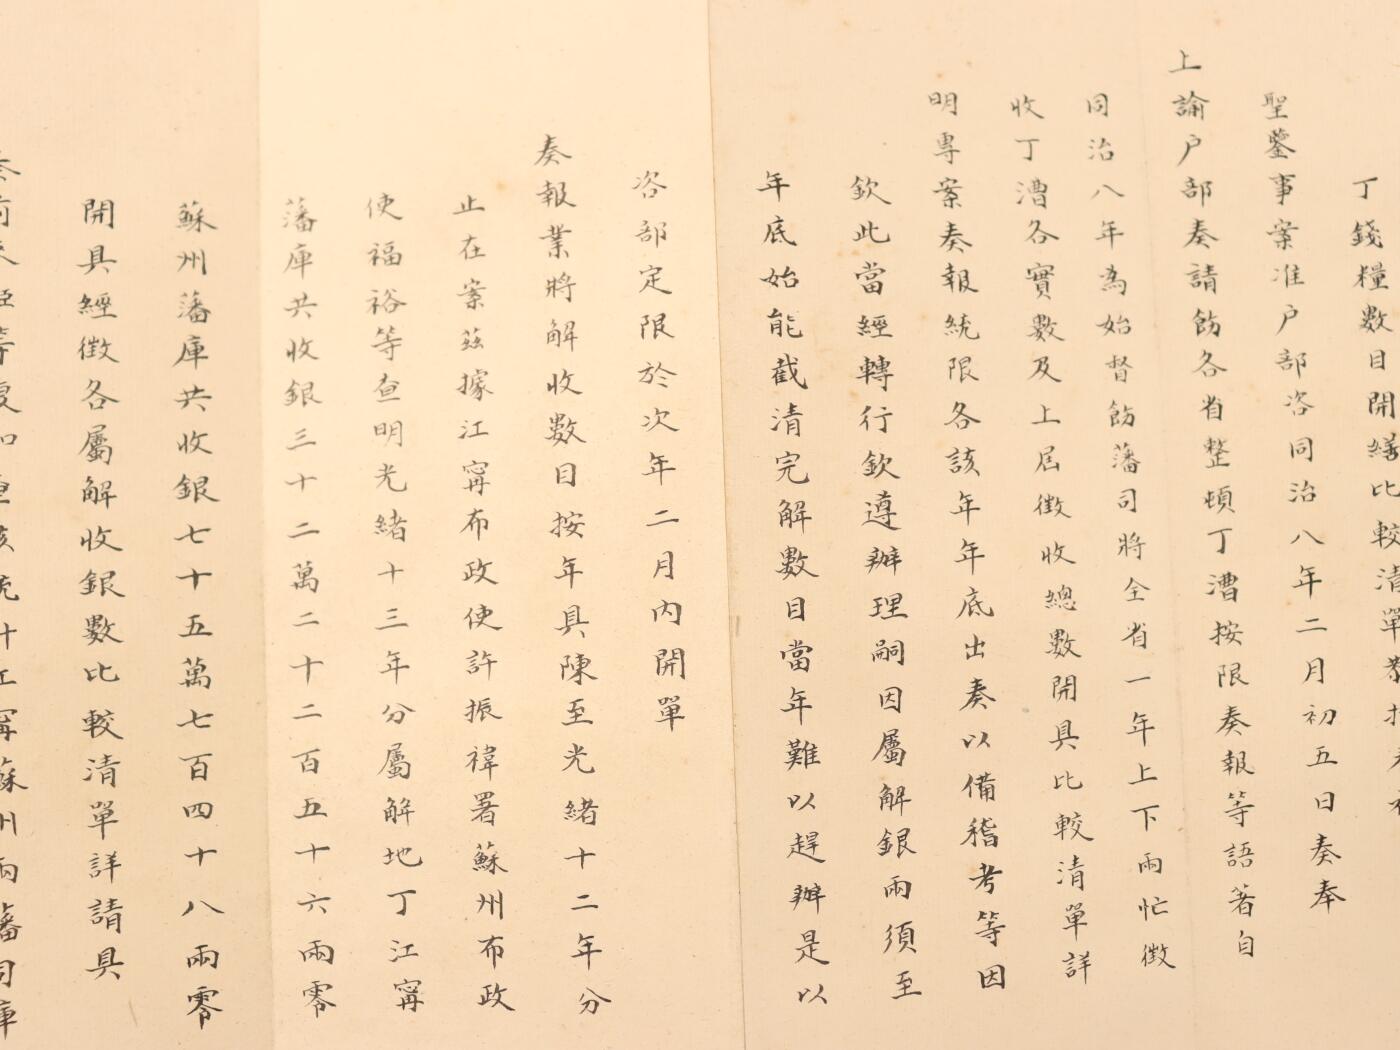 丁錢糧數目開繕比較清單恭摺
聖鑒事案准户部咨同治八年二月初五日奏奉
上諭户部奏請飭各省整頓丁漕按限奏報等語著自
同治八年為始督飭藩司將全省一年上下兩忙徵
收丁漕各實數及上屆徵收總數開具比較清單詳
明專案奏報統限各該年年底出奏以備稽考等因
欽此當經轉行欽遵辦理嗣因屬解銀兩須至
年底始能截清完解數目當年難以趕辦是以
咨部定限於次年二月內開單
奏報業將解收數目按年具陳至光緒十二年分
止在案茲據江寗布政使許振禕署蘇州布政
使福裕等查明光緒十三年分屬解地丁江寗
藩庫共收銀三十二萬二十二百五十六兩零
蘇州藩庫共收銀七十五萬七百四十八兩零
開具經徵各屬解收銀數比較清單詳請具
奏前來臣等覆加查核統計江寗蘇州兩藩司庫